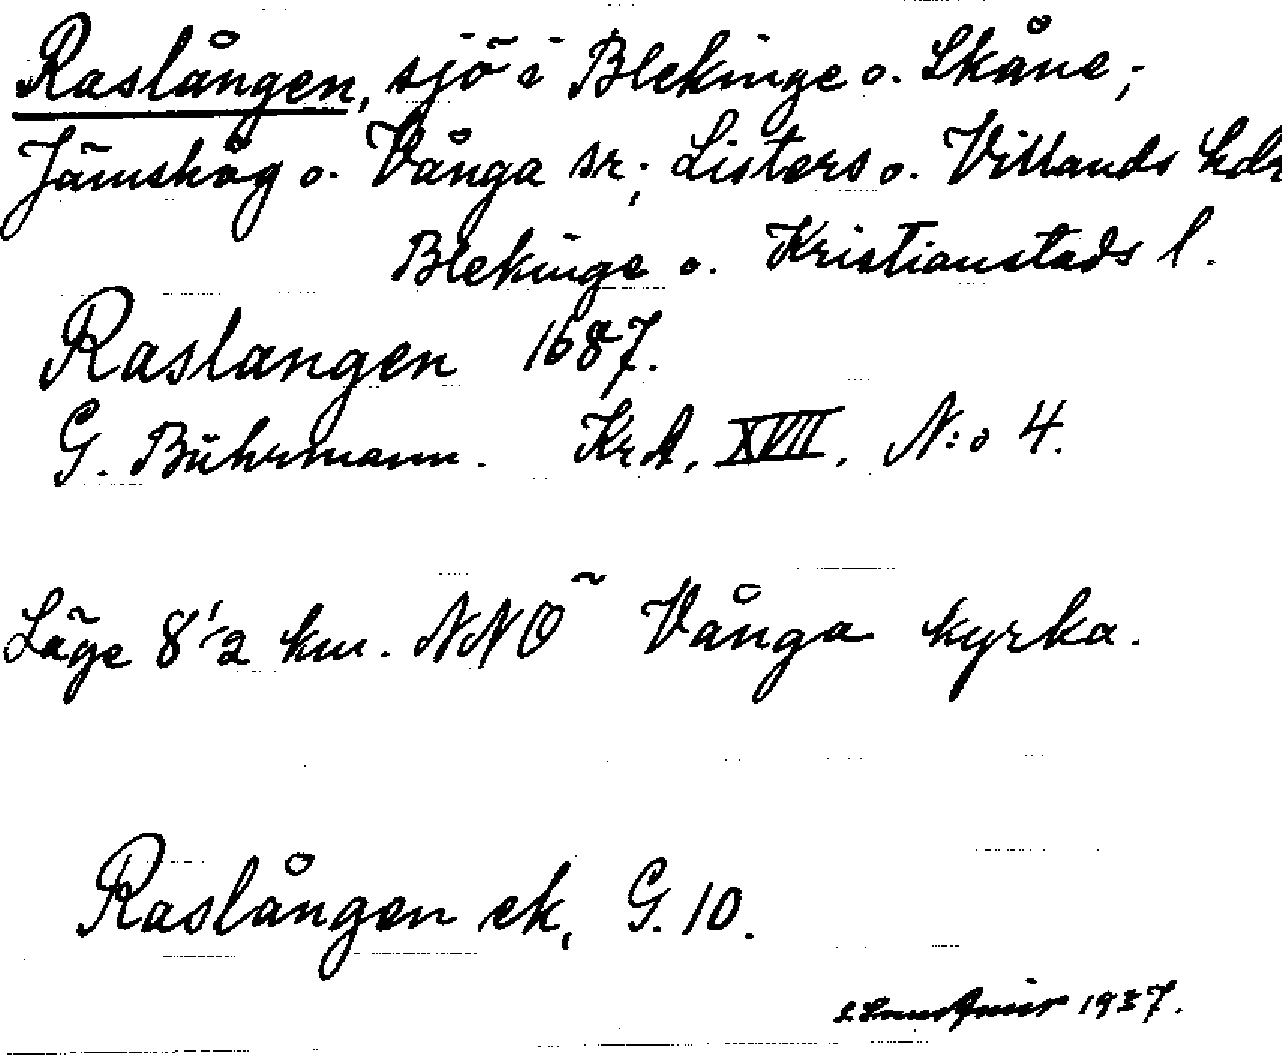 Raslången, sjö i Blekinge o. Skåne;
Jämshög o. Vånga sr; Listers o. Villands hdr
Blekinge o. Kristianstads l.
Raslangen 1687.
G. Buhrmann. KrA, XVII, N:o 4.
Läge 8 1/2 km. NNO~ Vånga kyrka.
Raslången ek, G. 10.
1937.